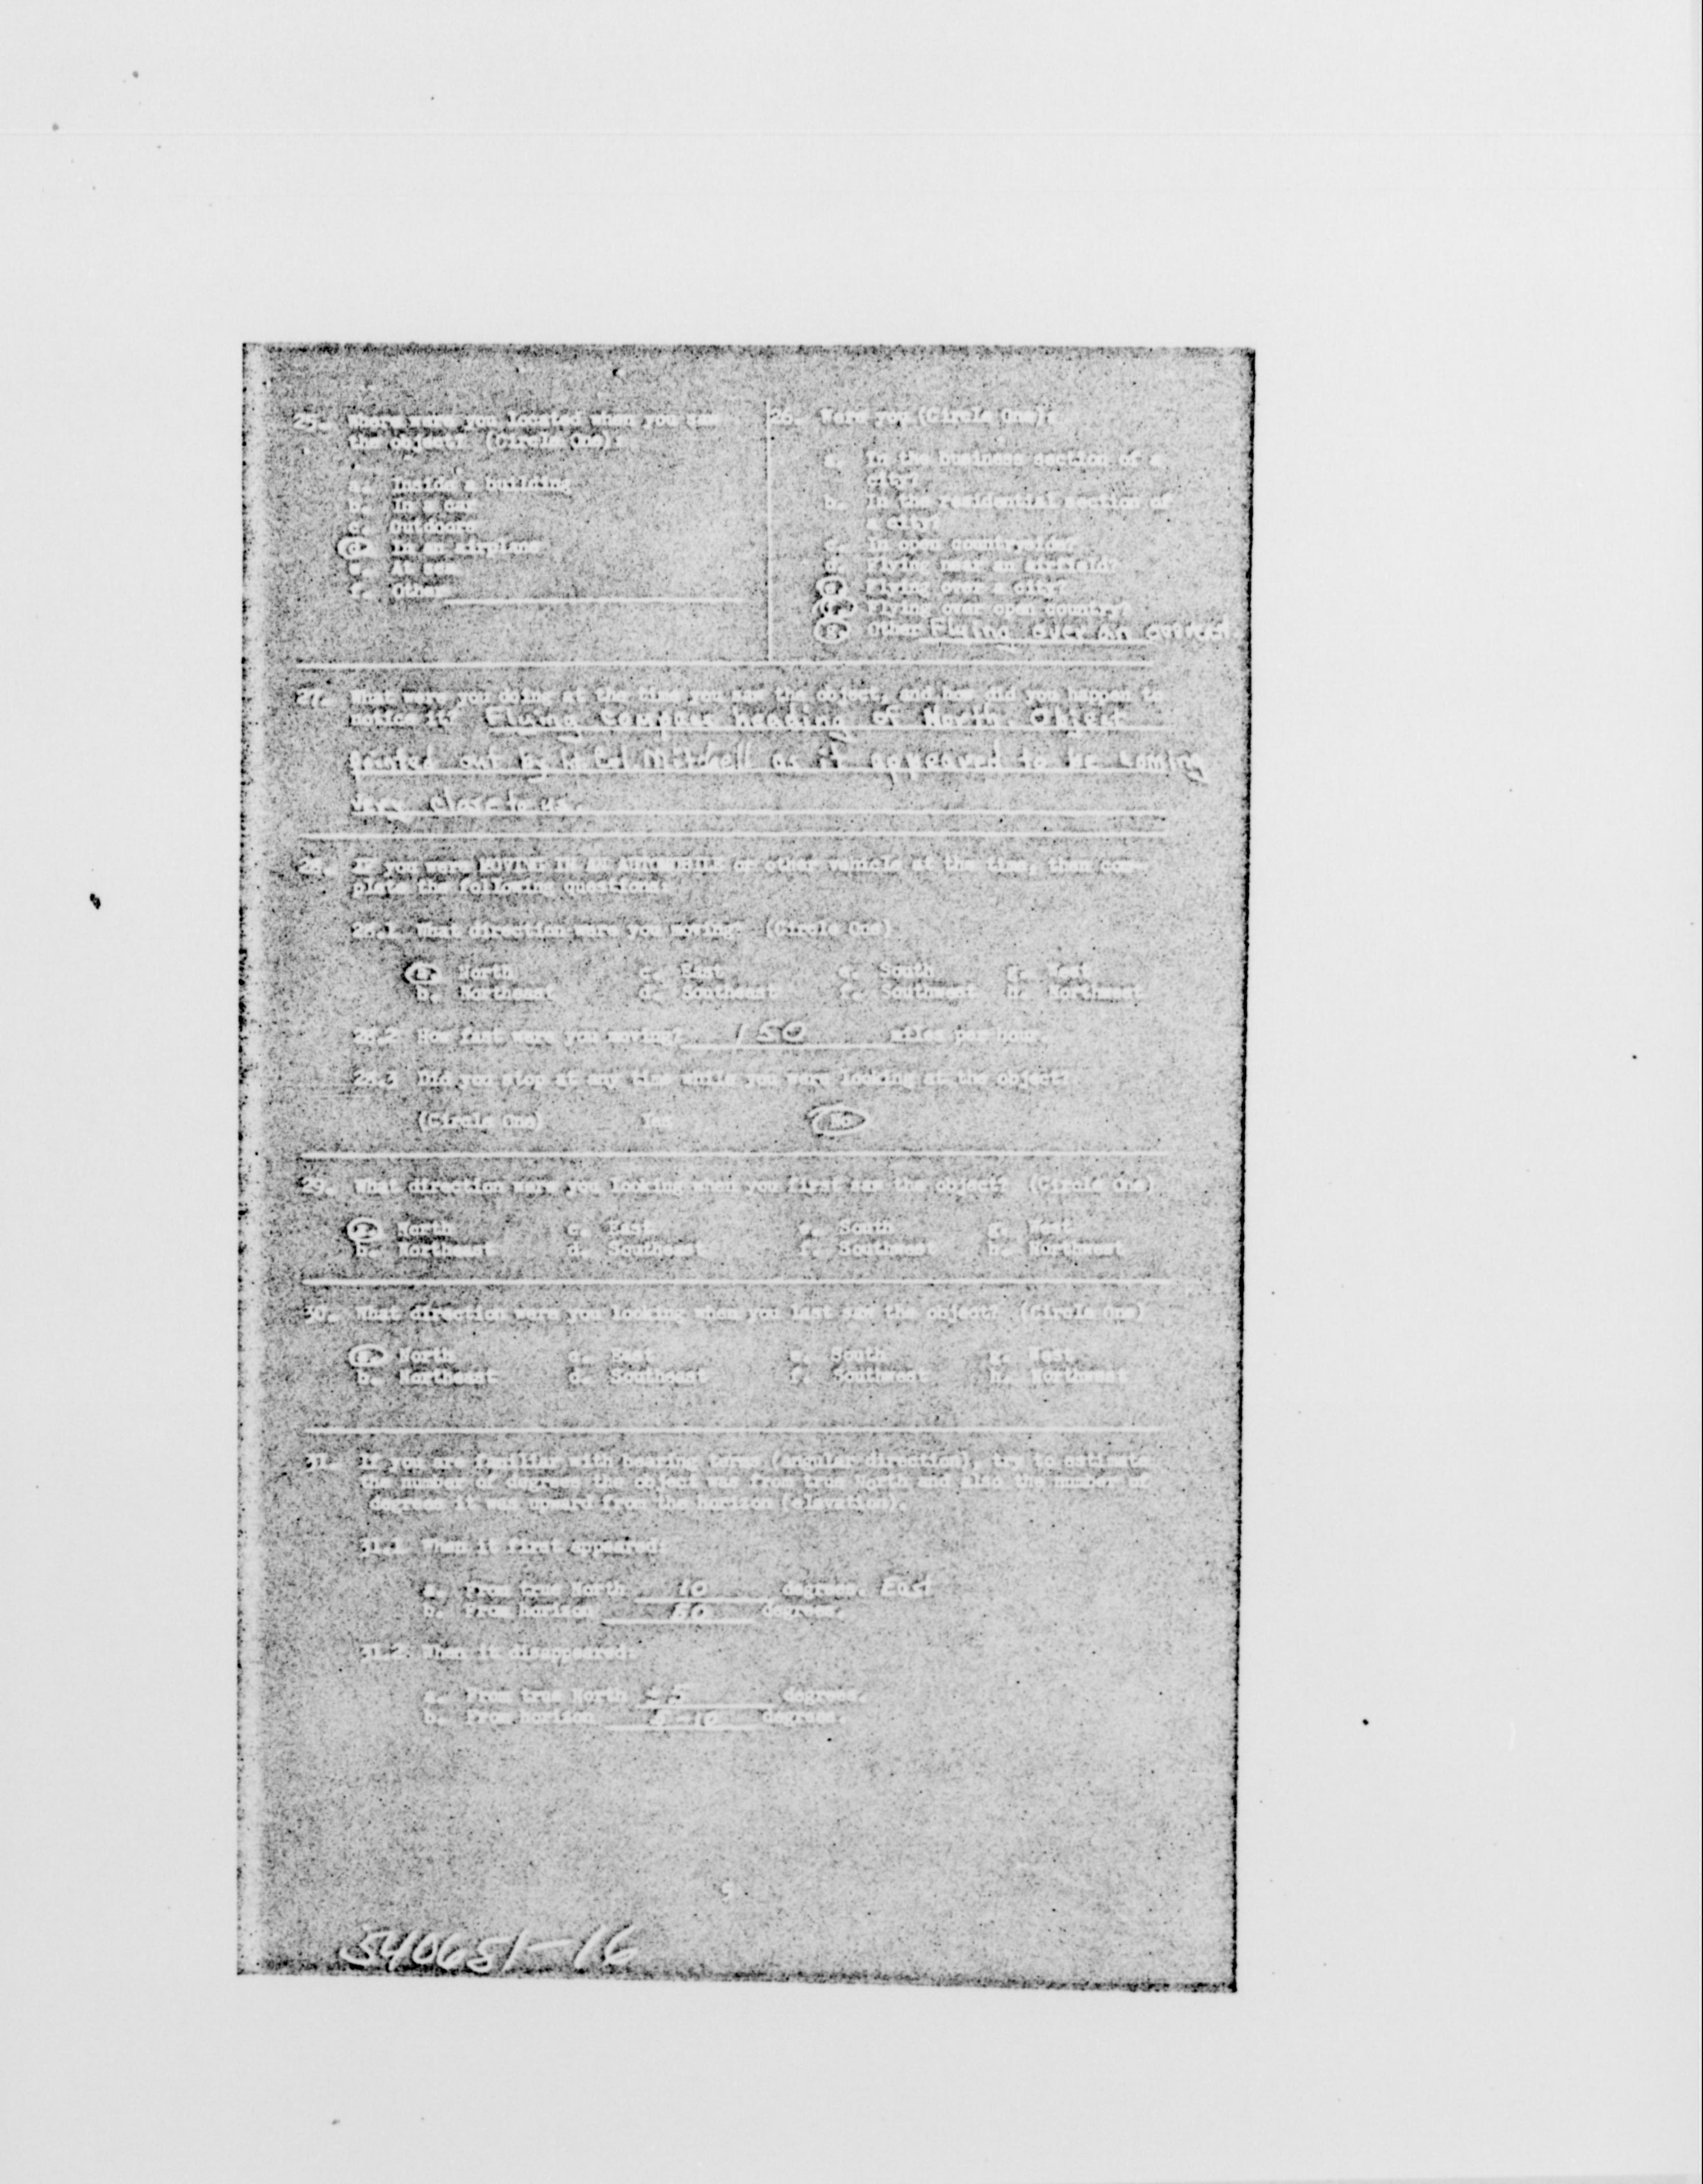 25. Where were you located when you saw
the object? (Circle One):
a. Inside a building
b. In a car
c. Outdoors
d. In an airplane
e. At sea
f. Other
26. Were you (Circle One):
a. In the business section of a
city?
b. In the residential section of
a city?
c. In open countryside?
d. Flying near an airfield?
e. Flying over a city?
f. Flying over open country?
g. Other Flying over an
27. What were you doing at the time you saw the object, and how did you happen to
notice it? Flying compass heading of North. Object
pointed out by Lt Col Mitchell as it appeared to be coming
very close to us.
28. If you were MOVING IN AN AUTOMOBILE or other vehicle at the time, then com-
plete the following questions:
28.1 What direction were you moving? (Circle One)
a. North c. East e. South g. West
b. Northeast d. Southeast f. Southwest h. Northwest
28.2 How fast were you moving? 150 miles per hour.
28.3 Did you stop at any time while you were looking at the object?
(Circle One) Yes No
29. What direction were you looking when you first saw the object? (Circle One)
a. North c. East e. South g. West
b. Northeast d. Southeast f. Southwest h. Northwest
30. What direction were you looking when you last saw the object? (Circle One)
a. North c. East e. South g. West
b. Northeast d. Southeast f. Southwest h. Northwest
31. If you are familiar with bearing terms (angular direction), try to estimate
the number of degrees the object was from true North and also the number of
degrees it was upward from the horizon (elevation).
31.1 When it first appeared:
a. From true North 10 degrees. East
b. From horizon 50 degrees.
31.2 When it disappeared:
a. From true North ±5 degrees.
b. From horizon 5-10 degrees.
5
540651-16